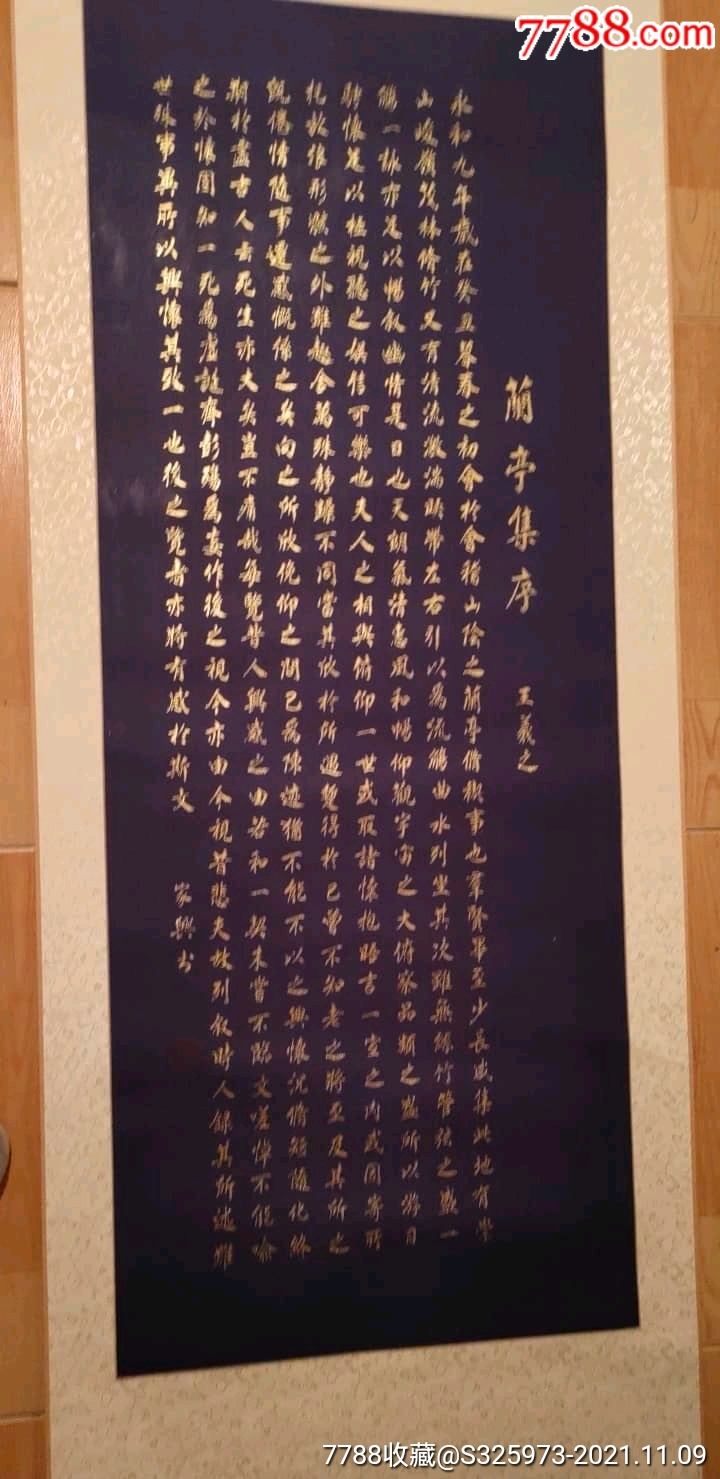 7788.com
蘭亭集序
王羲之
永和九年歲在癸丑暮春之初會於會稽山陰之蘭亭脩禊事也羣賢畢至少長咸集此地有崇
山峻嶺茂林脩竹又有清流激湍映帶左右引以為流觴曲水列坐其次雖無絲竹管弦之盛一
觴一詠亦足以暢叙幽情是日也天朗氣清惠風和暢仰觀宇宙之大俯察品類之盛所以游目
騁懷足以極視聽之娛信可樂也夫人之相與俯仰一世或取諸懷抱晤言一室之內或因寄所
托放浪形骸之外雖趣舍萬殊靜躁不同當其欣於所遇暫得於己曾不知老之將至及其所之
既倦情隨事遷感慨係之矣向之所欣俛仰之間已為陳迹猶不能不以之興懷況脩短隨化終
期於盡古人云死生亦大矣豈不痛哉每覽昔人興感之由若和一契未嘗不臨文嗟悼不能喻
之於懷固知一死為虛誕齊彭殤為妄作後之視今亦由今視昔悲夫故列叙時人録其所述雖
世殊事異所以興懷其致一也後之覽者亦將有感於斯文
家興书
7788收藏@S325973-2021.11.09